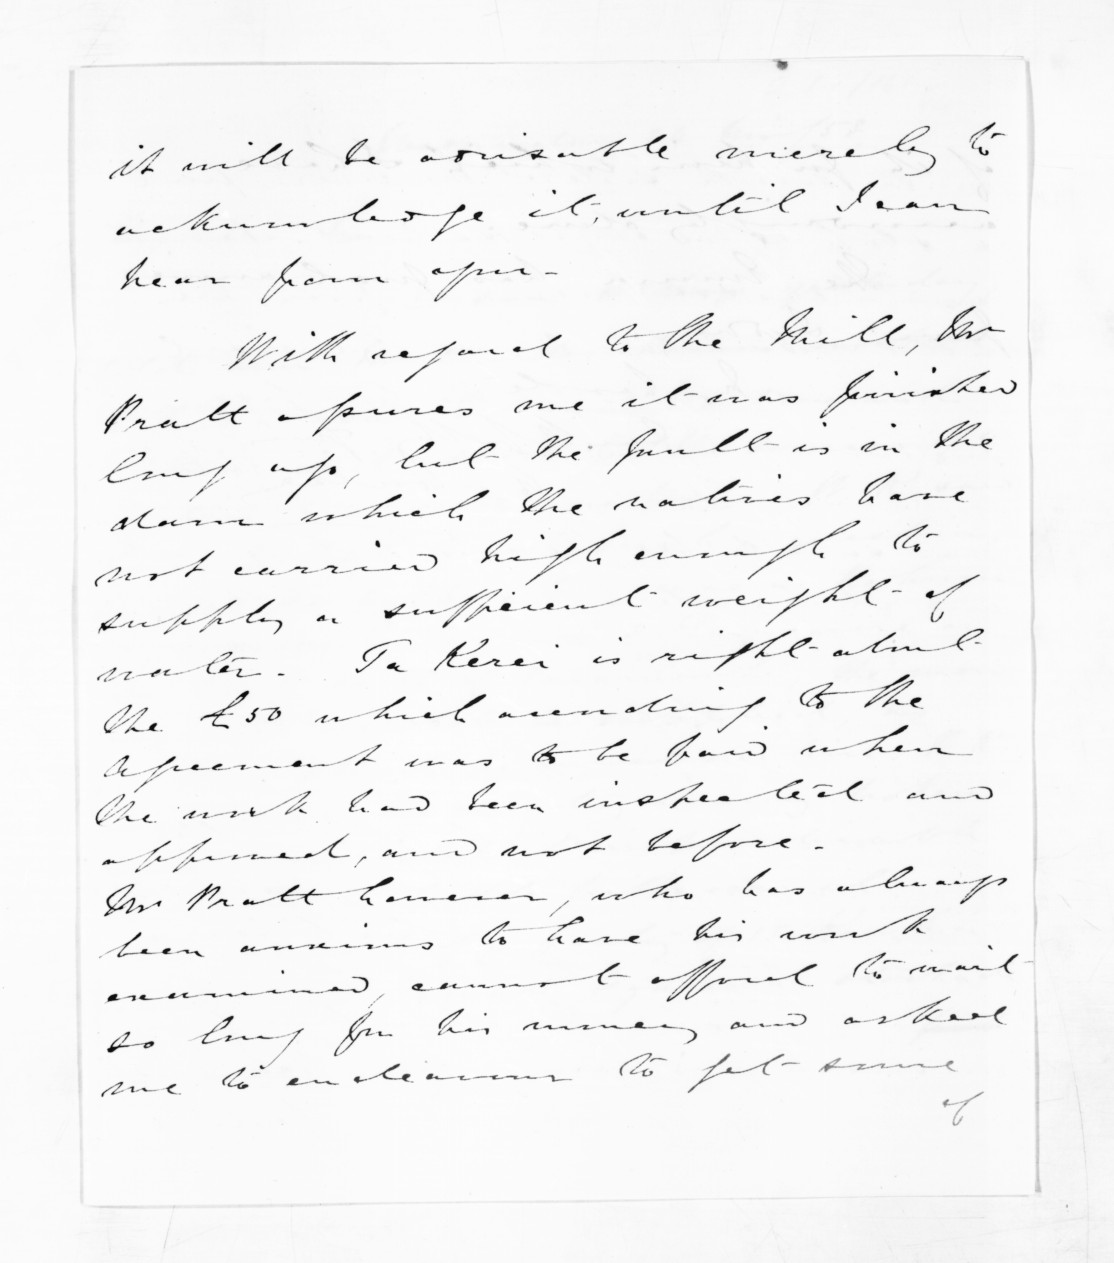 it will be advisable merely to
acknowledge it, until I can
hear from you -
With regard to the Mill, Mr
Pratt assures me it was finished
long ago, but the fault is in the
dam which the natives have
not carried high enough to
supply a sufficient weight of
water. Ta Kerei is right about
the £50 which according to the
agreement was to be paid when
the work had been inspected and
approved, and not before.
Mr Pratt however, who has always
been anxious to have his work
examined, cannot afford to wait
so long for his money and asked
me to endeavour to get some
of